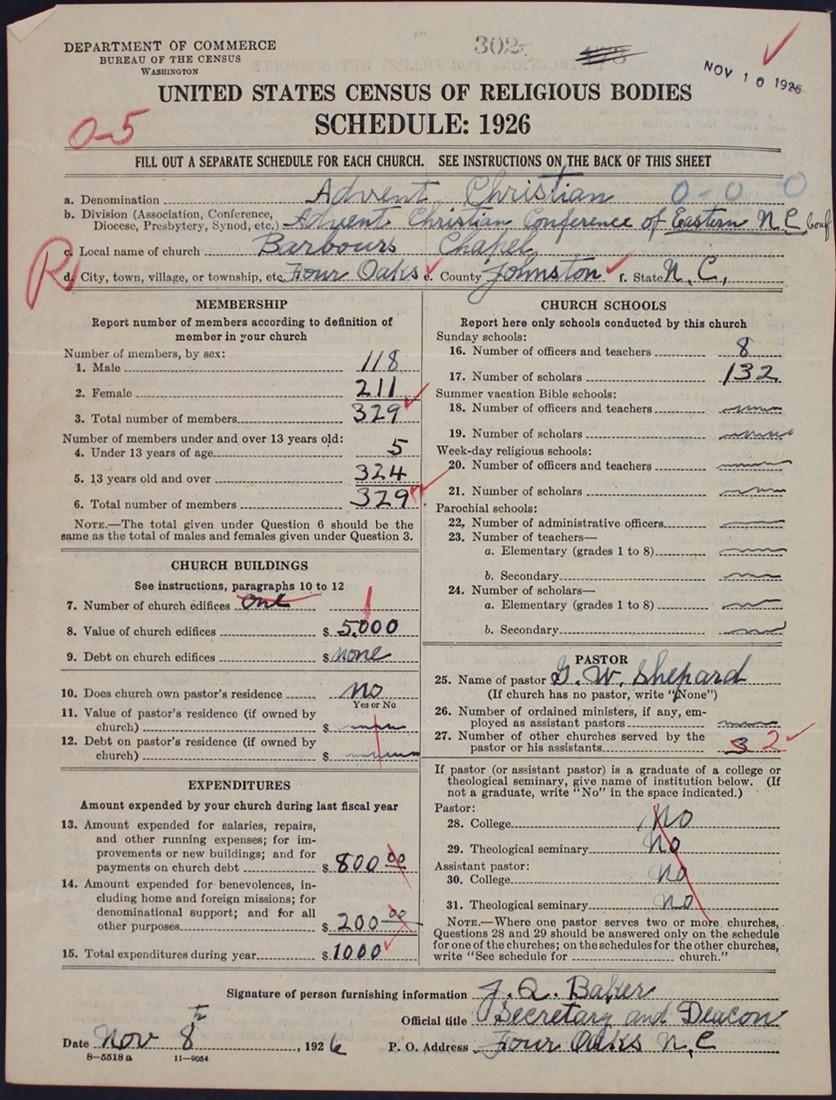 DEPARTMENT OF COMMERCE
BUREAU OF THE CENSUS
WASHINGTON
302
NOV 10 1926
UNITED STATES CENSUS OF RELIGIOUS BODIES
SCHEDULE: 1926
0-5
FILL OUT A SEPARATE SCHEDULE FOR EACH CHURCH. SEE INSTRUCTIONS ON THE BACK OF THIS SHEET
a. Denomination Advent Christian 0-0 0
b. Division (Association, Conference, Diocese, Presbytery, Synod, etc.) Advent Christian Conference of Eastern N.C. Conf
c. Local name of church Barbours Chapel
R
d. City, town, village, or township, etc. Four Oaks e. County Johnston f. State N.C.,
MEMBERSHIP
Report number of members according to definition of
member in your church
Number of members, by sex:
1. Male 118
2. Female 211
3. Total number of members 329
Number of members under and over 13 years old:
4. Under 13 years of age 5
5. 13 years old and over 324
6. Total number of members 329
NOTE.—The total given under Question 6 should be the
same as the total of males and females given under Question 3.
CHURCH BUILDINGS
See instructions, paragraphs 10 to 12
7. Number of church edifices One 1
8. Value of church edifices $ 5,000
9. Debt on church edifices $ none
10. Does church own pastor's residence No
Yes or No
11. Value of pastor's residence (if owned by
church) $
12. Debt on pastor's residence (if owned by
church) $
EXPENDITURES
Amount expended by your church during last fiscal year
13. Amount expended for salaries, repairs,
and other running expenses; for im-
provements or new buildings; and for
payments on church debt $ 800 00
14. Amount expended for benevolences, in-
cluding home and foreign missions; for
denominational support; and for all
other purposes $ 200 00
15. Total expenditures during year $ 1000
CHURCH SCHOOLS
Report here only schools conducted by this church
Sunday schools:
16. Number of officers and teachers 8
17. Number of scholars 132
Summer vacation Bible schools:
18. Number of officers and teachers
19. Number of scholars
Week-day religious schools:
20. Number of officers and teachers
21. Number of scholars
Parochial schools:
22. Number of administrative officers
23. Number of teachers—
a. Elementary (grades 1 to 8)
b. Secondary
24. Number of scholars—
a. Elementary (grades 1 to 8)
b. Secondary
PASTOR
25. Name of pastor G. W. Shepard
(If church has no pastor, write "None")
26. Number of ordained ministers, if any, em-
ployed as assistant pastors
27. Number of other churches served by the
pastor or his assistants 3 2
If pastor (or assistant pastor) is a graduate of a college or
theological seminary, give name of institution below. (If
not a graduate, write "No" in the space indicated.)
Pastor:
28. College No
29. Theological seminary No
Assistant pastor:
30. College No
31. Theological seminary No
NOTE.—Where one pastor serves two or more churches,
Questions 28 and 29 should be answered only on the schedule
for one of the churches; on the schedules for the other churches,
write "See schedule for church."
Signature of person furnishing information J. Q. Baker
Official title Secretary and Deacon
Date Nov 8th, 1926 P. O. Address Four Oaks N.C
8-5518 a 11-9054